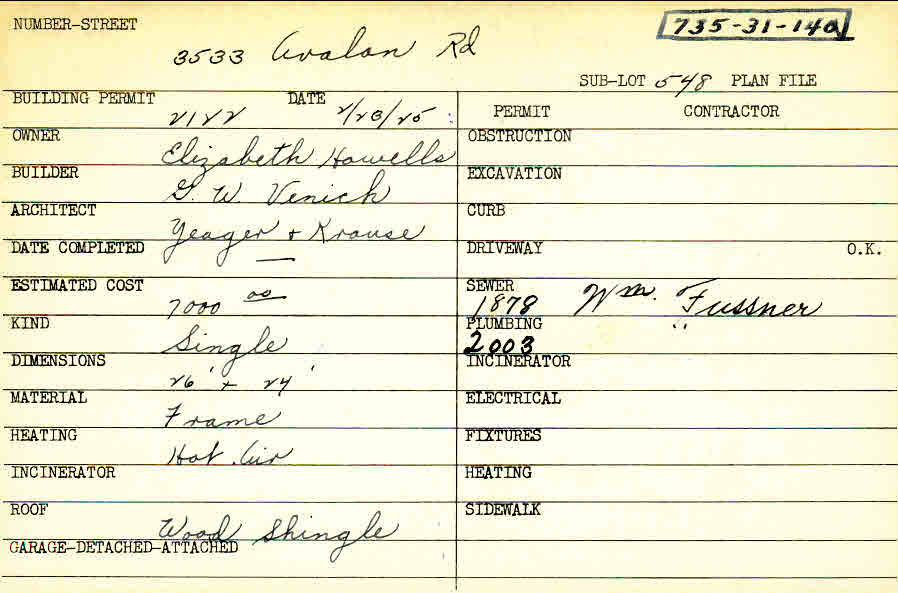 NUMBER-STREET
735-31-140
3533 Avalon Rd
SUB-LOT 548 PLAN FILE
BUILDING PERMIT 2122 DATE 2/23/25
OWNER Elizabeth Howells
BUILDER G. W. Venich
ARCHITECT Yeager + Krause
DATE COMPLETED —
ESTIMATED COST 7000 00
KIND Single
DIMENSIONS 26' + 24'
MATERIAL Frame
HEATING Hot Air
INCINERATOR
ROOF Wood Shingle
GARAGE-DETACHED-ATTACHED
PERMIT CONTRACTOR
OBSTRUCTION
EXCAVATION
CURB
DRIVEWAY O.K.
SEWER 1878 Wm. Fussner
PLUMBING 2003 "
INCINERATOR
ELECTRICAL
FIXTURES
HEATING
SIDEWALK